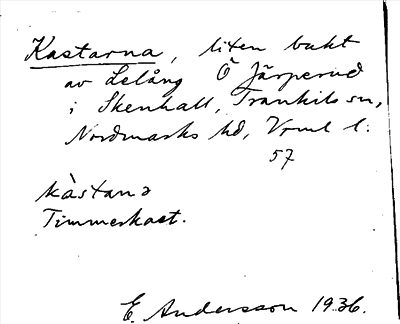 Kastarna, liten bukt
av Lelång Ö Järperud
i Skenhall, Trankils sn,
Nordmarks hd, Vrml l.
57
kàstana
Timmerkast.
E. Andersson 1936.